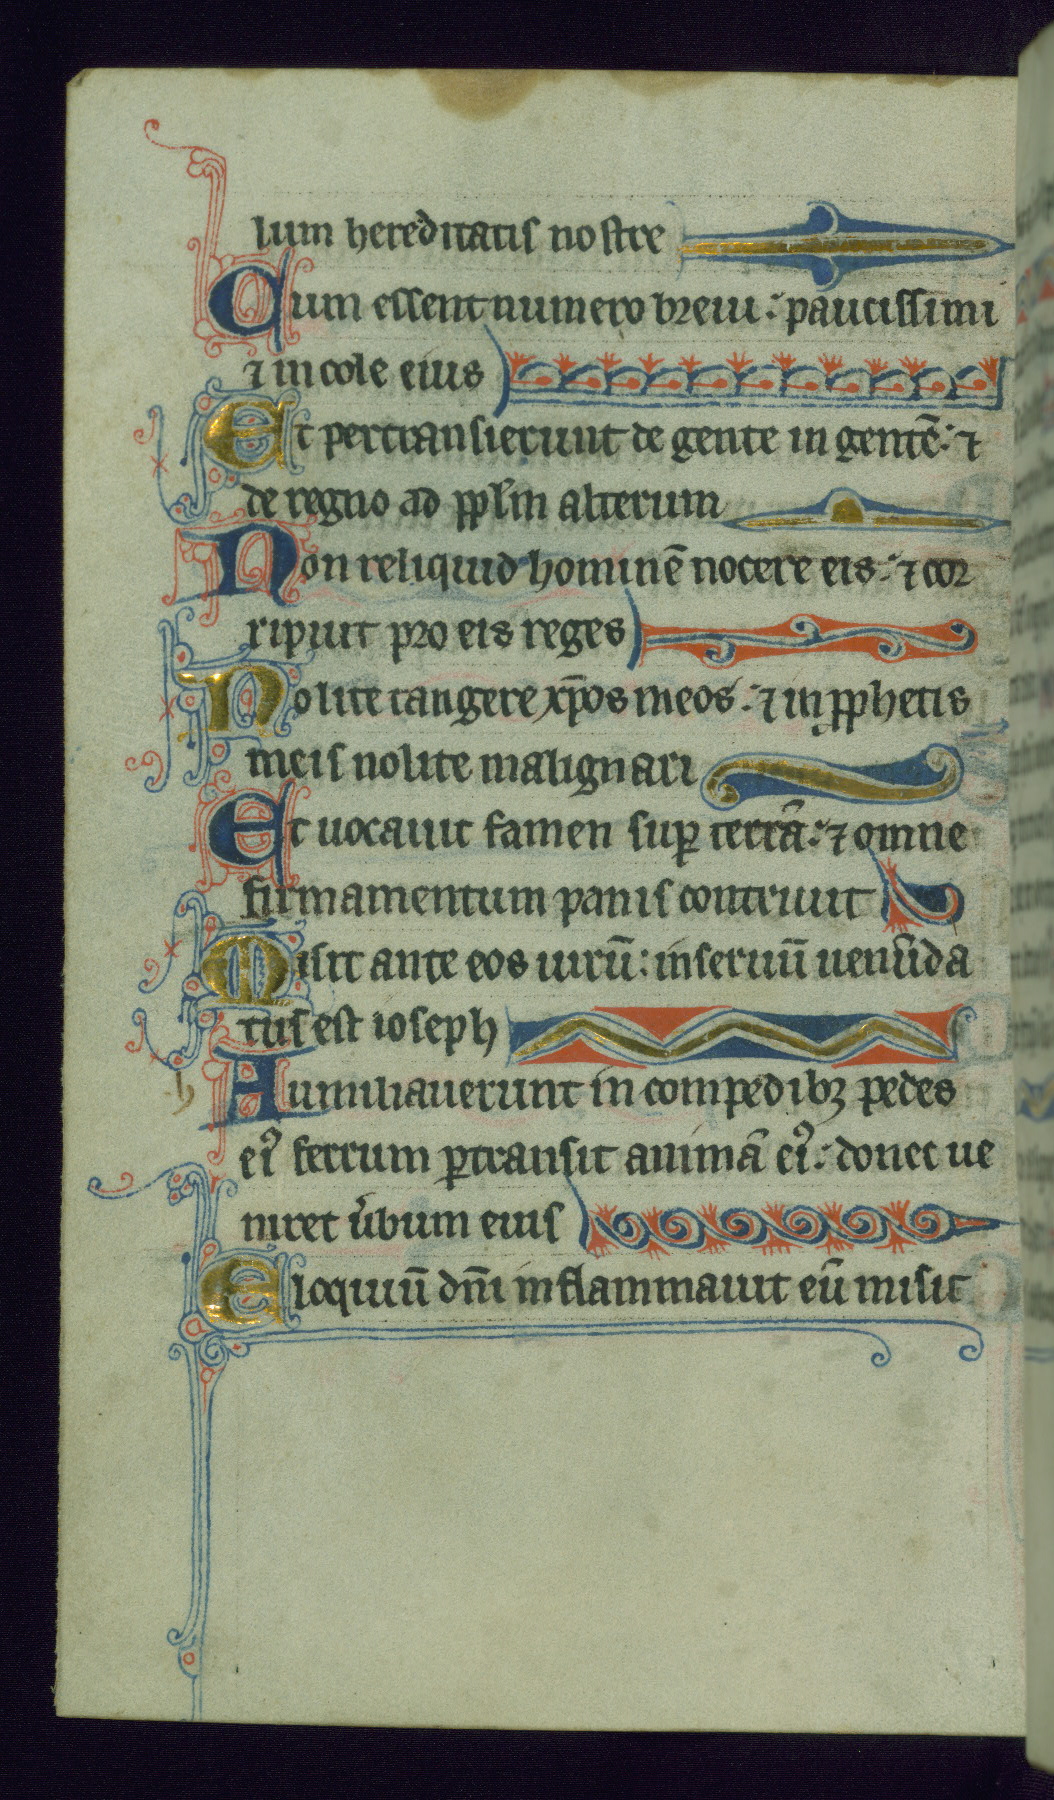 lum hereditatis nostre
Cum essent numero breui : paucissimi
⁊ incole eius
Et pertransierunt de gente in gentē : ⁊
de regno ad pp̄lm alterum
Non reliquid hominē nocere eis : ⁊ cor
ripuit pro eis reges
Nolite tangere xp̄os meos : ⁊ in ꝓphetis
meis nolite malignari
Et uocauit famen suꝑ terrā : ⁊ omne
firmamentum panis contriuit
Misit ante eos uirū : in seruū uenūda
tus est ioseph
Aumiliauerunt in compedibꝫ pedes
h
eiꝰ ferrum ꝑtransiit animā eiꝰ : donec ue
niret u̓bum eius
Eloquiū dn̄i inflammauit eū misit